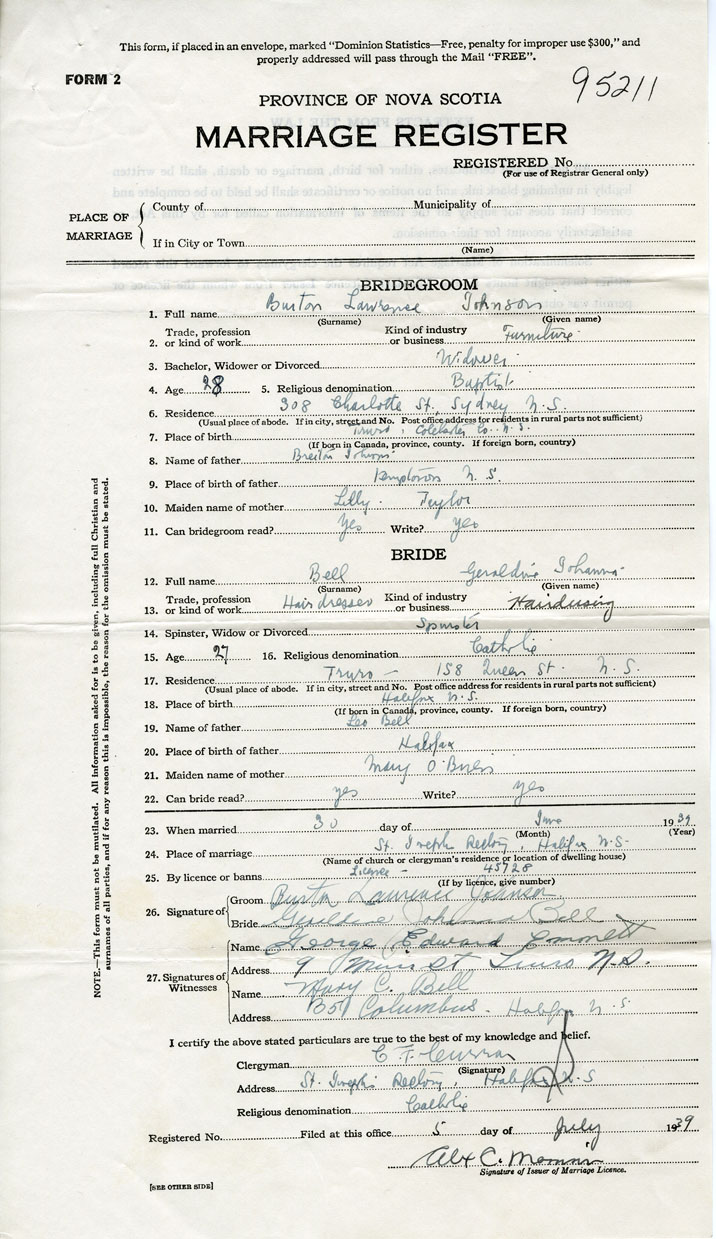 This form, if placed in an envelope, marked "Dominion Statistics—Free, penalty for improper use $300," and
properly addressed will pass through the Mail "FREE".
FORM 2
95211
PROVINCE OF NOVA SCOTIA
MARRIAGE REGISTER
REGISTERED No.
(For use of Registrar General only)
PLACE OF MARRIAGE
County of Municipality of
If in City or Town
(Name)
BRIDEGROOM
1. Full name Burton Lawrence Johnson
(Surname) (Given name)
2. Trade, profession or kind of work Kind of industry or business Furniture
3. Bachelor, Widower or Divorced Widower
4. Age 28 5. Religious denomination Baptist
6. Residence 308 Charlotte St., Sydney N.S.
(Usual place of abode. If in city, street and No. Post office address for residents in rural parts not sufficient)
7. Place of birth Truro, Colchester Co. N.S.
(If born in Canada, province, county. If foreign born, country)
8. Name of father
9. Place of birth of father N.S.
10. Maiden name of mother Lilly Taylor
11. Can bridegroom read? Yes Write? yes
BRIDE
12. Full name Bell Geraldine Johanna
(Surname) (Given name)
13. Trade, profession or kind of work Hairdresser Kind of industry or business
14. Spinster, Widow or Divorced Spinster
15. Age 27 16. Religious denomination Catholic
17. Residence Truro — 158 Queen St. N.S.
(Usual place of abode. If in city, street and No. Post office address for residents in rural parts not sufficient)
18. Place of birth Halifax N.S.
(If born in Canada, province, county. If foreign born, country)
19. Name of father Leo Bell
20. Place of birth of father Halifax
21. Maiden name of mother Mary O'Brien
22. Can bride read? yes Write? yes
23. When married 30 day of June 1939
(Month) (Year)
24. Place of marriage St. Joseph Rectory, Halifax N.S.
(Name of church or clergyman's residence or location of dwelling house)
25. By licence or banns License — 45728
(If by licence, give number)
26. Signature of
Groom Burton Lawrence Johnson
Bride Geraldine Johanna Bell
27. Signatures of Witnesses
Name George Edward Emmett
Address 9 St Truro N.S.
Name Mary C. Bell
Address Columbus. Halifax N.S
I certify the above stated particulars are true to the best of my knowledge and belief.
Clergyman C. F. Curran
(Signature)
Address St. Joseph's Rectory, Halifax N.S
Religious denomination Catholic
Registered No. Filed at this office 5 day of July 1939
Alex C.
Signature of Issuer of Marriage Licence.
[SEE OTHER SIDE]
NOTE.—This form must not be mutilated. All information asked for is to be given, including full Christian and
surnames of all parties, and if for any reason this is impossible, the reason for the omission must be stated.